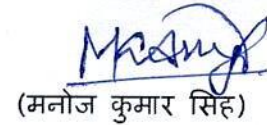 (मनोज कुमार सिंह)